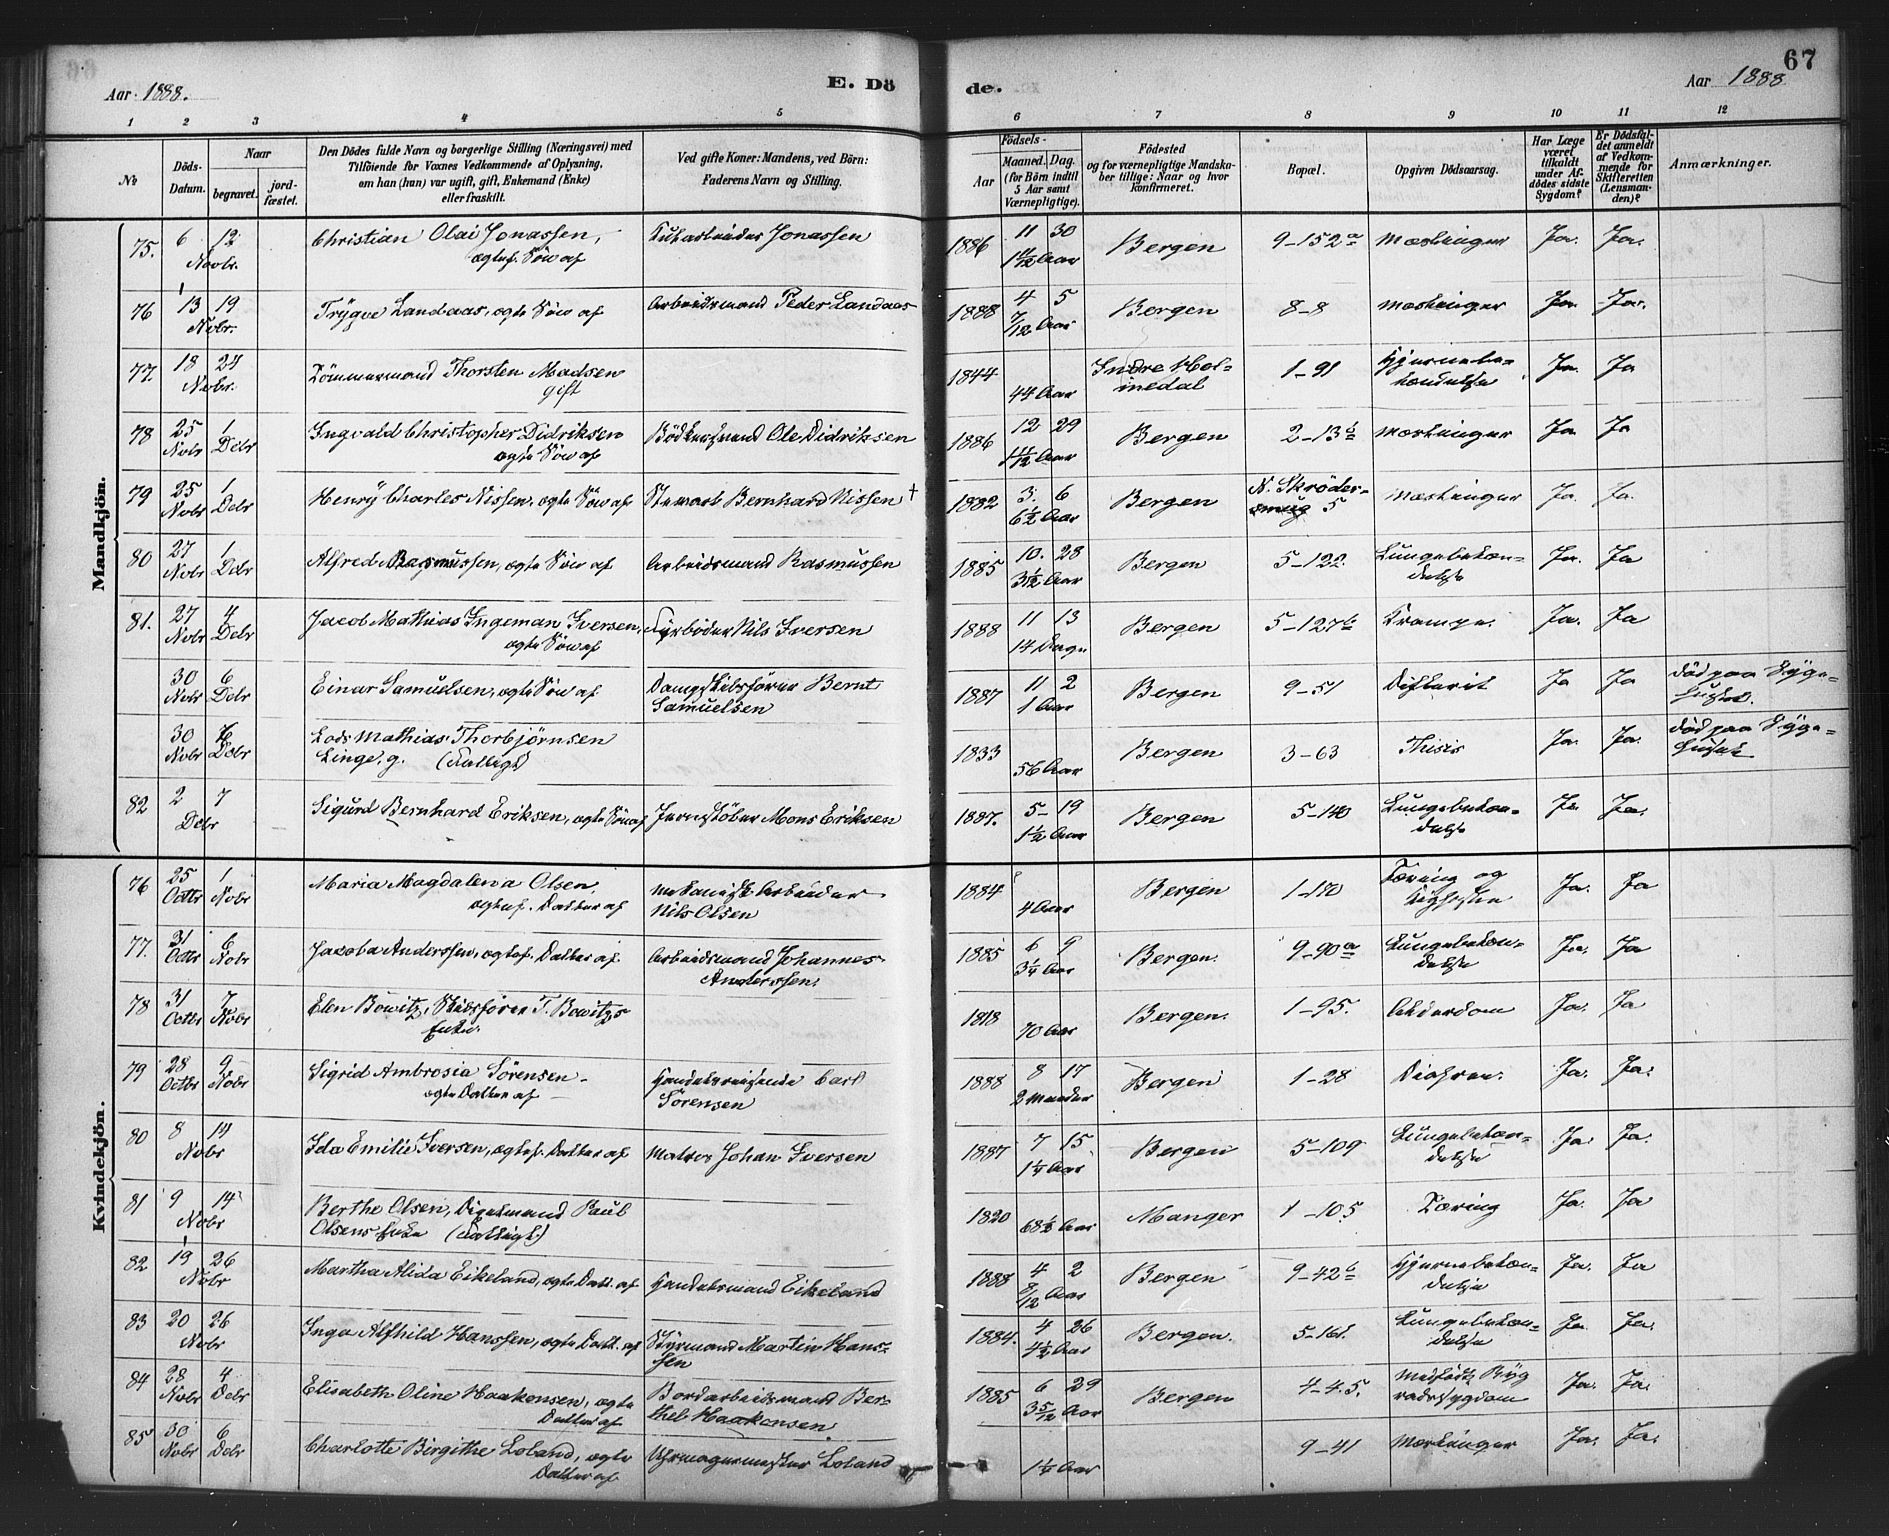 67
Aar 1888.
E. Dö
de.
Aar 1888
1 2 3 4 5 6 7 8 9 10 11 12
No
Döds-
Datum.
Naar
begravet.
jord-
fæstet.
Den Dödes fulde Navn og borgerlige Stilling (Næringsvei) med
Tilföiende for Voxnes Vedkommende af Oplysning,
om han (hun) var ugift, gift, Enkemand (Enke)
eller fraskilt.
Ved gifte Koner: Mandens, ved Börn:
Faderens Navn og Stilling.
Födsels-
Aar
Maaned. Dag.
(for Börn indtil
5 Aar samt
Værnepligtige).
Födested
og for værnepligtige Mandska-
ber tillige: Naar og hvor
konfirmeret.
Bopæl.
Opgiven Dödsaarsag.
Har Læge
været
tilkaldt
under Af-
dödes sidste
Sygdom?
Er Dödsfal-
det anmeldt
af Vedkom-
mende for
Skifteretten
(Lensman-
den)?
Anmærkninger.
Mandkjön.
75. 6 12 Christian Olai Jonassen, Jonassen 1886 11 30 Bergen 9-152a Mæslinger Ja. Ja.
Novbr. ægtef. Søn af 1 11/12 Aar
76 13 19 Trygve Landaas, ægte Søn af Arbeidsmand Peder Landaas 1888 4 5 Bergen 8-8 Mæslinger Ja. Ja.
Novbr. 7/12 Aar
77. 18 24 Tömmermand Thorsten Madsen 1844 Indre Hol- 1-91 Hjernebe- Ja. Ja
Novbr. gift 44 Aar medal tændelse
78 25 1 Ingvald Christopher Didriksen Bödkersvend Ole Didriksen 1886 12 29 Bergen 2-13b Mæslinger Ja Ja
Novbr Debr ægte Søn af 1 11/12 Aar
79 25 1 Henry Charles Nissen, ægte Søn af Stewart Bernhard Nissen † 1882 3. 6 Bergen N. Skröder- Mæslinger Ja. Ja.
Novbr Debr 6 1/2 Aar smug 5
80 27 1 Alfred Rasmussen, ægte Søn af Arbeidsmand Rasmussen 1885 10. 28 Bergen 5-122. Lungebetæn- Ja. Ja
Novbr Debr 3 1/12 Aar delse
81. 27 4 Jacob Mathias Ingeman Iversen, Fyrböder Nils Iversen 1888 11 13 Bergen 5-127b Krampe. Ja. Ja
Novbr Debr ægte Søn af 14 Dage
30 6 Einar Samuelsen, ægte Søn af Dampskibsfører Bernt 1887 11 2 Bergen 9-51 Difterit Ja Ja död paa Syge-
Novbr Debr Samuelsen 1 Aar huset.
30 Lods Mathias Thorbjörnsen 1833 Bergen 3-63 Thisis Ja. Ja. död paa Syge-
Novbr Debr Linge, g. (Fattigl) 56 Aar huset
82 2 7 Sigurd Bernhard Eriksen, ægte Søn af Jernstøber Mons Eriksen 1887. 5- 19 Bergen 5-140 Lungebetæn- Ja Ja.
Debr 1 1/2 Aar delse
Kvindekjön.
76 25 1 Maria Magdalena Olsen, mekanisk Arbeider 1884 Bergen 1-170 Tæring og Ja. Ja
Octbr Novbr ægtef. Datter af Nils Olsen 4 Aar
77. 31 6 Jacoba Anderssen, ægtef. Datter af Arbeidsmand Johannes 1885 6 9 Bergen. 9-90a Lungebetæn- Ja. Ja
Octbr Novbr Anderssen. 3 1/4 Aar delse
78 31 7 Elen Böwitz, Skibsfører T. Bowitzs 1818 Bergen. 1-95. Alderdom Ja. Ja
Octbr Novbr Enke. 70 Aar
79 28 9 Sigrid Ambrosia Sörensen Handelsreisende Carl 1888 8 17 Bergen 1-28 Diahree. Ja. Ja.
Octbr Novbr ægte Datter af Sörensen 2 Maaneder
80 8 14 Ida Emilie Iversen, ægtef. Datter af Matros Johan Iversen 1887 7 15 Bergen 5-109 Lungebetæn- Ja. Ja.
Novbr 1 1/4 Aar delse
81 9 14 Berthe Olsen, Paul 1820 Manger 1-105 Tæring Ja. Ja
Novbr Olsens Enke (Fattigl.) 68 1/2 Aar
82 19 26 Martha Alida Eikeland, ægte Datt. af Handelsmand Eikeland 1888 4 2 Bergen 9-42b Hjernebetæn- Ja. Ja
Novbr 8/12 Aar delse
83 20 26 Inga Alfhild Hanssen, ægte Datt. af Styrmand Martin Hans- 1884. 4 26 Bergen. 5-161. Lungebetæn- Ja. Ja.
Novbr sen 4 1/2 Aar delse
84 28 4 Elisabeth Oline Haakonsen, ægte Bordarbeidsmand Ber- 1885 6 29 Bergen 4-45. Medfødt Ryg Ja. Ja.
Novbr Debr Datter af thel Haakonsen. 3 5/12 Aar radssygdom
85 30 6 Charlotte Birgithe Loland, ægte Uhrmagermester Loland 9-41 Mæslinger Ja. Ja.
Novbr Debr Datter af 1 1/4 Aar